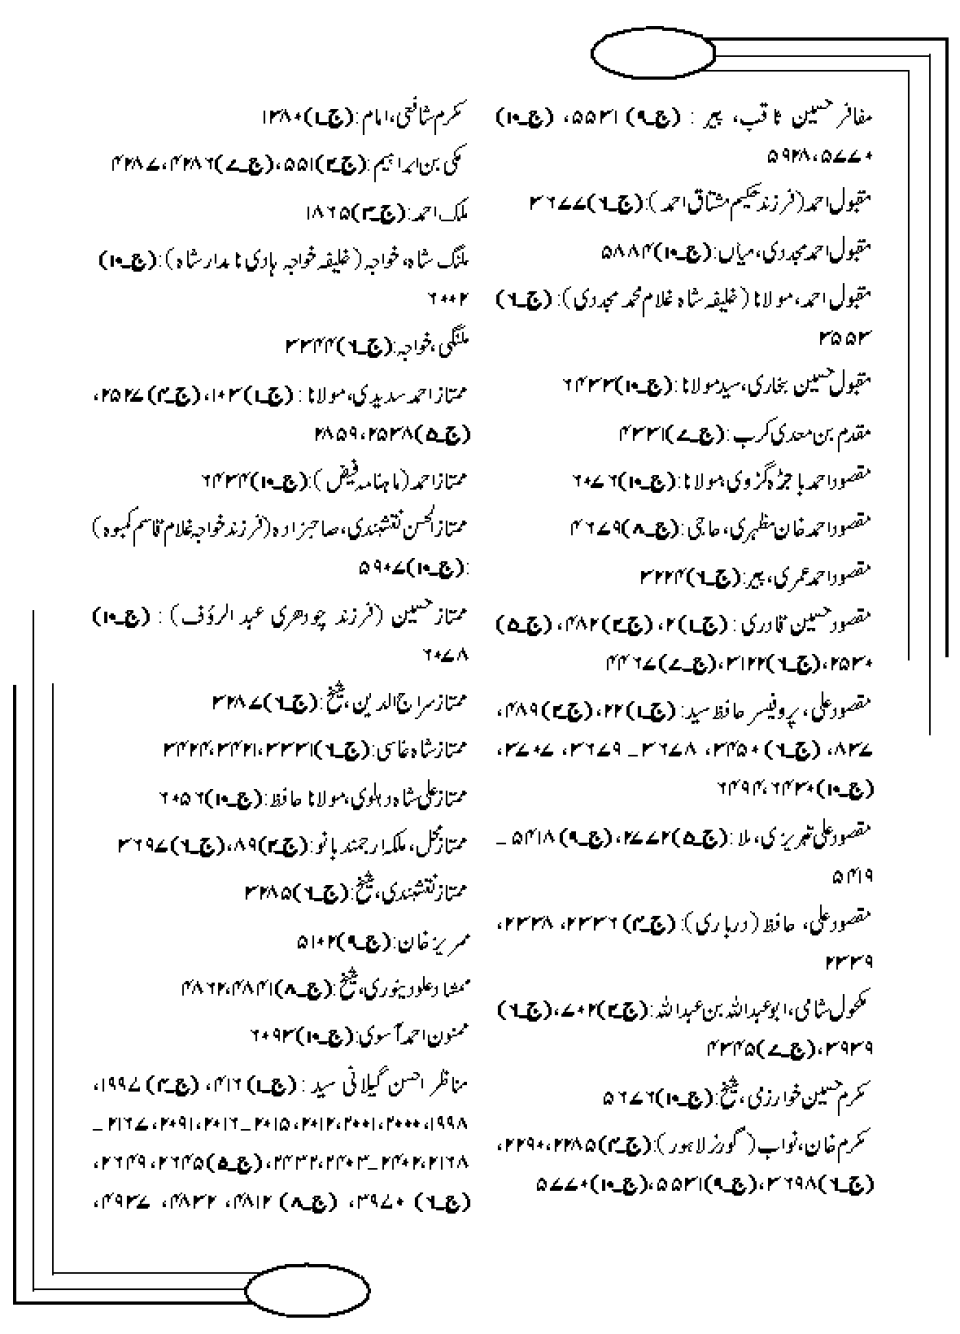 مظفر حسین ثاقب، پیر : (ج۔۹) ۵۵۳۱، (ج۔۱۰)
۵۷۷۰، ۵۹۲۸
مقبول احمد (فرزند حکیم مشتاق احمد): (ج۔۶) ۳۶۷۷
مقبول احمد مجددی، میاں: (ج۔۱۰) ۵۸۸۴
مقبول احمد، مولانا (خلیفہ شاہ غلام محمد مجددی): (ج۔۶)
۳۵۵۳
مقبول حسین بخاری، سید مولانا: (ج۔۱۰) ۶۴۳۳
مقدم بن معدی کرب: (ج۔۷) ۴۳۳۱
مقصود احمد باجڑہ گڑوی، مولانا: (ج۔۱۰) ۶۰۷۶
مقصود احمد خان مظہری، حاجی: (ج۔۸) ۴۶۷۹
مقصود احمد عمری، پیر: (ج۔۶) ۳۲۲۴
مقصود حسین قادری: (ج۔۱) ۲، (ج۔۲) ۴۸۲، (ج۔۵)
۲۵۳۰، (ج۔۶) ۳۱۲۲، (ج۔۷) ۴۴۶۷
مقصود علی، پروفیسر حافظ سید: (ج۔۱) ۲۲، (ج۔۲) ۴۸۹،
۸۳۷، (ج۔۶) ۳۴۵۰، ۳۶۷۸ _ ۳۶۷۹، ۳۷۰۷، ۳۷۲۰،
(ج۔۱۰) ۶۴۳۰، ۶۴۹۴
مقصود علی تبریزی، ملا: (ج۔۵) ۲۷۷۲، (ج۔۹) ۵۴۱۸ _
۵۴۱۹
مقصود علی، حافظ (درباری): (ج۔۴) ۲۳۳۶، ۲۳۳۸،
۲۳۳۹
مکحول شامی، ابو عبداللہ بن عبداللہ: (ج۔۲) ۷۰۲، (ج۔۶)
۳۹۳۹، (ج۔۷) ۴۳۴۵
مکرم حسین خوارزمی، شیخ: (ج۔۱۰) ۵۶۷۶
مکرم خان، نواب (گورنر لاہور): (ج۔۴) ۲۲۸۵، ۲۲۹۰،
(ج۔۶) ۳۶۹۸، (ج۔۹) ۵۵۳۱، (ج۔۱۰) ۵۷۷۰
مکرم شافعی، امام: (ج۔۱) ۱۳۸۰
مکی بن ابراہیم: (ج۔۲) ۵۵۱، (ج۔۷) ۴۲۸۶، ۴۲۸۷
ملک احمد: (ج۔۳) ۱۸۶۵
ملنگ شاہ، خواجہ (خلیفہ خواجہ ہادی نامدار شاہ): (ج۔۱۰)
۶۰۰۲
ملنگی، خواجہ: (ج۔۶) ۳۳۴۴
ممتاز احمد سدیدی، مولانا: (ج۔۱) ۱۰۳، (ج۔۴) ۲۵۲۷،
(ج۔۵) ۲۵۳۸، ۲۸۵۹
ممتاز احمد (ماہنامہ فیض): (ج۔۱۰) ۶۴۳۴
ممتاز الحسن نقشبندی، صاحبزادہ (فرزند خواجہ غلام قاسم کمبوہ)
: (ج۔۱۰) ۵۹۰۷
ممتاز حسین (فرزند چودھری عبدالرؤف) : (ج۔۱۰)
۶۰۷۸
ممتاز سراج الدین، شیخ: (ج۔۶) ۳۲۸۷
ممتاز شاہ عاسی: (ج۔۶) ۳۳۳۱، ۳۴۲۱، ۳۴۲۴
ممتاز علی شاہ دہلوی، مولانا حافظ: (ج۔۱۰) ۶۰۵۶
ممتاز محل، ملکہ ارجمند بانو: (ج۔۲) ۸۹، (ج۔۶) ۳۶۹۷
ممتاز نقشبندی، شیخ: (ج۔۶) ۳۲۸۵
ممریز خان: (ج۔۹) ۵۱۰۲
ممشاد علو دینوری، شیخ: (ج۔۸) ۴۸۴۱، ۴۸۶۲
ممنون احمد آسوی: (ج۔۱۰) ۶۰۹۳
مناظر احسن گیلانی سید : (ج۔۱) ۴۱۶، (ج۔۴) ۱۹۹۷،
۱۹۹۸، ۲۰۰۰، ۲۰۰۱، ۲۰۱۲، ۲۰۱۵ _ ۲۰۱۶، ۲۰۹۱، ۲۱۶۷ _
۲۱۶۸، ۲۴۰۲ _ ۲۴۰۳، ۲۴۳۲، (ج۔۵) ۲۶۴۵، ۲۶۴۹،
(ج۔۶) ۳۹۷۰، (ج۔۸) ۴۸۱۲، ۴۸۳۲، ۴۹۳۷،